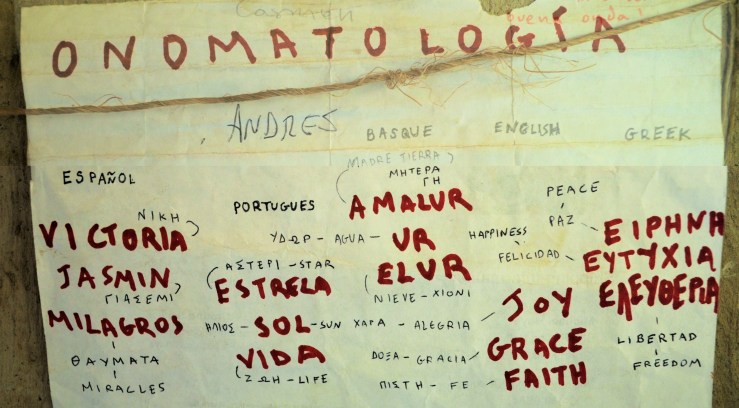 Carmen
buena onda!
ONOMATOLOGÍA
ANDRES
BASQUE
ENGLISH
GREEK
MADRE TIERRA
ΜΗΤΕΡΑ
ΓΗ
AMALUR
ESPAÑOL
PORTUGUES
PEACE
PAZ
ΕΙΡΗΝΗ
ΝΙΚΗ
VICTORIA
ΥΔΩΡ - AGUA - UR
HAPPINESS
FELICIDAD - ΕΥΤΥΧΙΑ
JASMIN
ΓΙΑΣΕΜΙ
ΑΣΤΕΡΙ - STAR
ESTRELA
ELUR
NIEVE - ΧΙΟΝΙ
ΕΛΕΥΘΕΡΙΑ
LIBERTAD
FREEDOM
MILAGROS
ΘΑΥΜΑΤΑ
MIRACLES
ΗΛΙΟΣ - SOL - SUN
ΧΑΡΑ - ALEGRIA - JOY
VIDA
ΖΩΗ - LIFE
ΔΟΞΑ - GRACIA - GRACE
ΠΙΣΤΗ - FE - FAITH